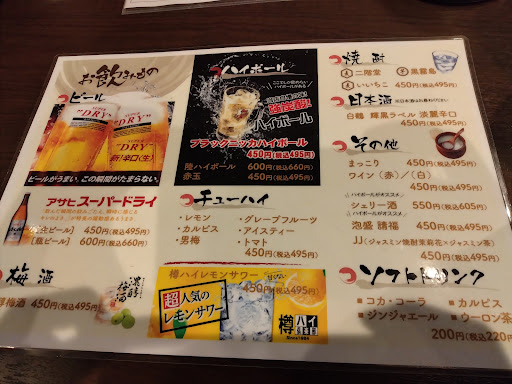 お飲みもの
ビール
"DRY"
"DRY"
辛口〈生〉
ビールがうまい。この瞬間がたまらない。
アサヒスーパードライ
450円(税込495円)
[瓶ビール] 600円(税込660円)
梅酒
梅酒 450円(税込495円)
ハイボール
ハイボール
ブラックニッカハイボール
450円(税込495円)
陸ハイボール 600円(税込660円)
赤玉 450円(税込495円)
チューハイ
・レモン ・グレープフルーツ
・カルピス ・アイスティー
・男梅 ・トマト
450円(税込495円)
樽ハイレモンサワー
450円(税込495円)
超人気の
レモンサワー
樽ハイ
倶楽部
Since1984
焼酎
二階堂 黒霧島
いいちこ 450円(税込495円)
日本酒
白鶴 輝黒ラベル 淡麗辛口
450円(税込495円)
その他
まっこり 450円(税込495円)
ワイン(赤)/(白)
450円(税込495円)
ハイボールがオススメ
シェリー酒 550円(税込605円)
ハイボールがオススメ
泡盛 請福 450円(税込495円)
JJ(ジャスミン焼酎茉莉花×ジャスミン茶)
450円(税込495円)
ソフトドリンク
コカ・コーラ カルピス
ジンジャエール ウーロン茶
200円(税込220円)